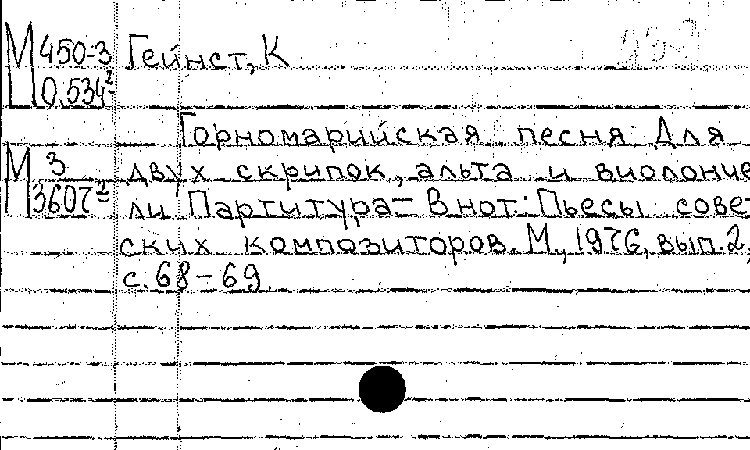 М 450-3 Гейнст, К
0.534²
Горномарийская песня. Для
М 3 двух скрипок, альта и виолонче
3607² ли Партитура – В нот: Пьесы сове-
ских композиторов. М., 1976, вып. 2,
с. 68 – 69